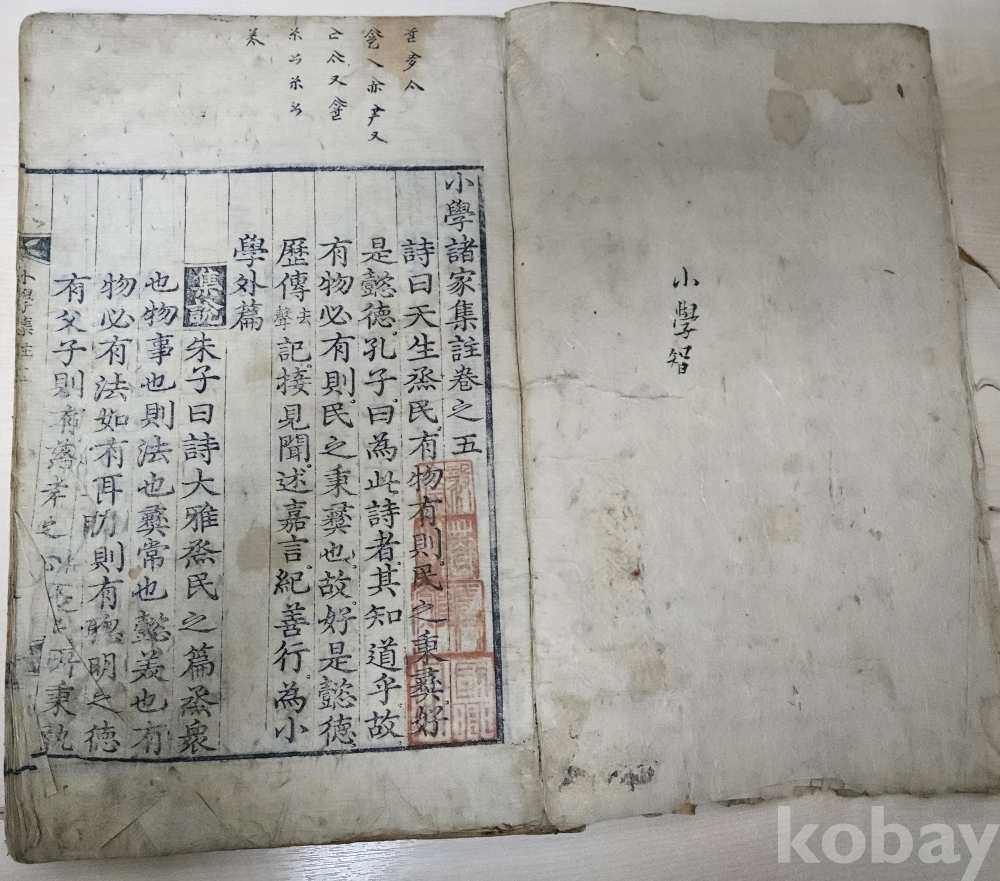 小學智
小學諸家集註卷之五
詩曰天生烝民有物有則民之秉彛好
是懿德孔子曰為此詩者其知道乎故
有物必有則民之秉彛也故好是懿德
歷傳去聲記接見聞述嘉言紀善行為小
學外篇
集說朱子曰詩大雅烝民之篇烝衆
也物事也則法也彛常也懿美也有
物必有法如有耳目則有聰明之德
有父子則有慈孝之心是民所秉執
小學集註
kobay